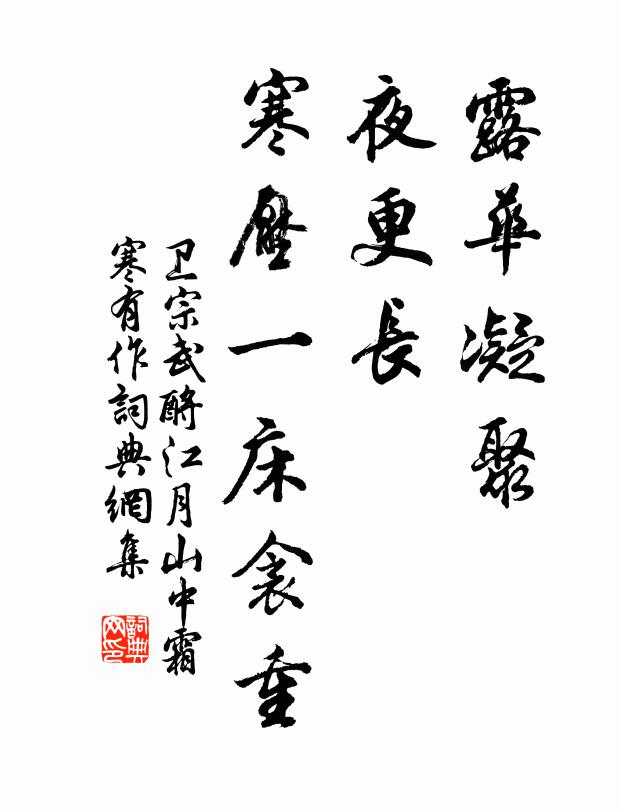 露華凝聚
夜更長
寒壓一床衾重
卫宗武酹江月山中霜
寒有作詞典網集
詞典网印